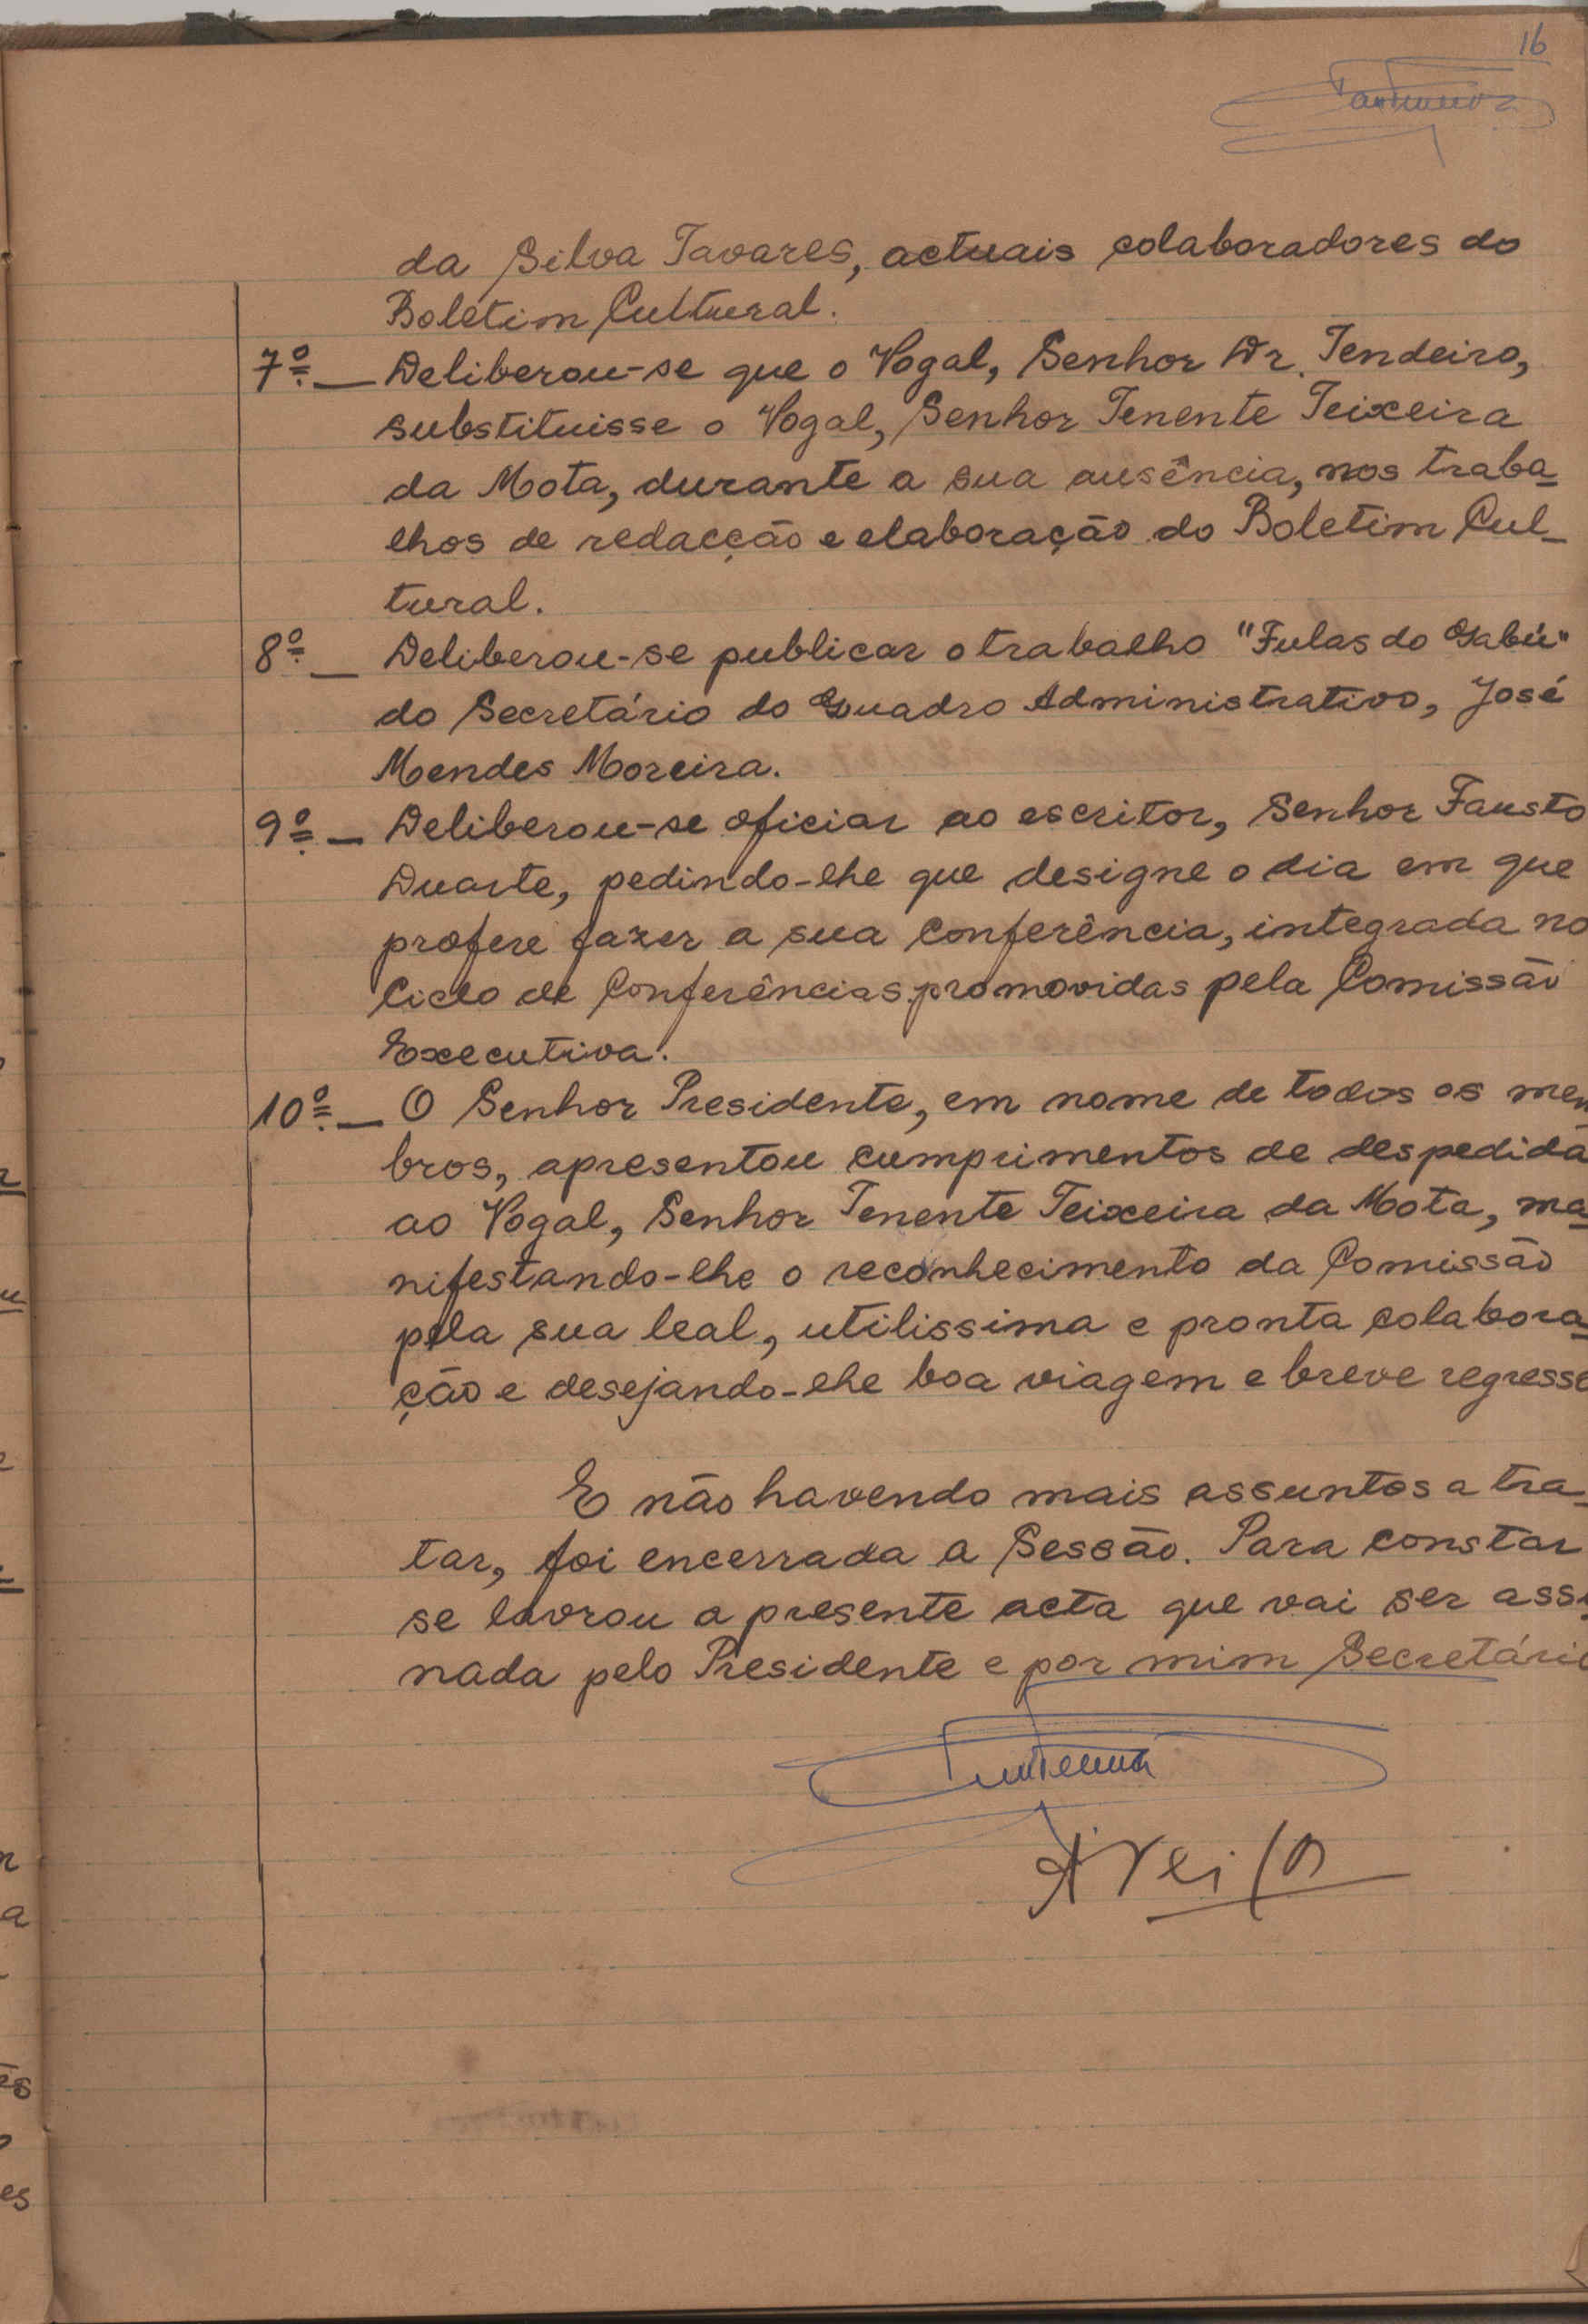 16
da Silva Tavares, actuais colaboradores do
Boletim Cultural.
7º. — Deliberou-se que o Vogal, Senhor Dr. Tendeiro,
substituisse o Vogal, Senhor Tenente Teixeira
da Mota, durante a sua ausência, nos traba-
lhos de redacção e elaboração do Boletim Cul-
tural.
8º. — Deliberou-se publicar o trabalho "Fulas do Gabú"
do Secretário do Quadro Administrativo, José
Mendes Moreira.
9º. — Deliberou-se oficiar ao escritor, Senhor Fausto
Duarte, pedindo-lhe que designe o dia em que
profere fazer a sua conferência, integrada no
Ciclo de Conferências promovidas pela Comissão
Executiva.
10º. — O Senhor Presidente, em nome de todos os mem
bros, apresentou cumprimentos de despedida
ao Vogal, Senhor Tenente Teixeira da Mota, ma-
nifestando-lhe o reconhecimento da Comissão
pela sua leal, utilissima e pronta colabora-
ção e desejando-lhe boa viagem e breve regresso
E não havendo mais assuntos a tra-
tar, foi encerrada a Sessão. Para constar
se lavrou a presente acta que vai ser assi-
nada pelo Presidente e por mim Secretário